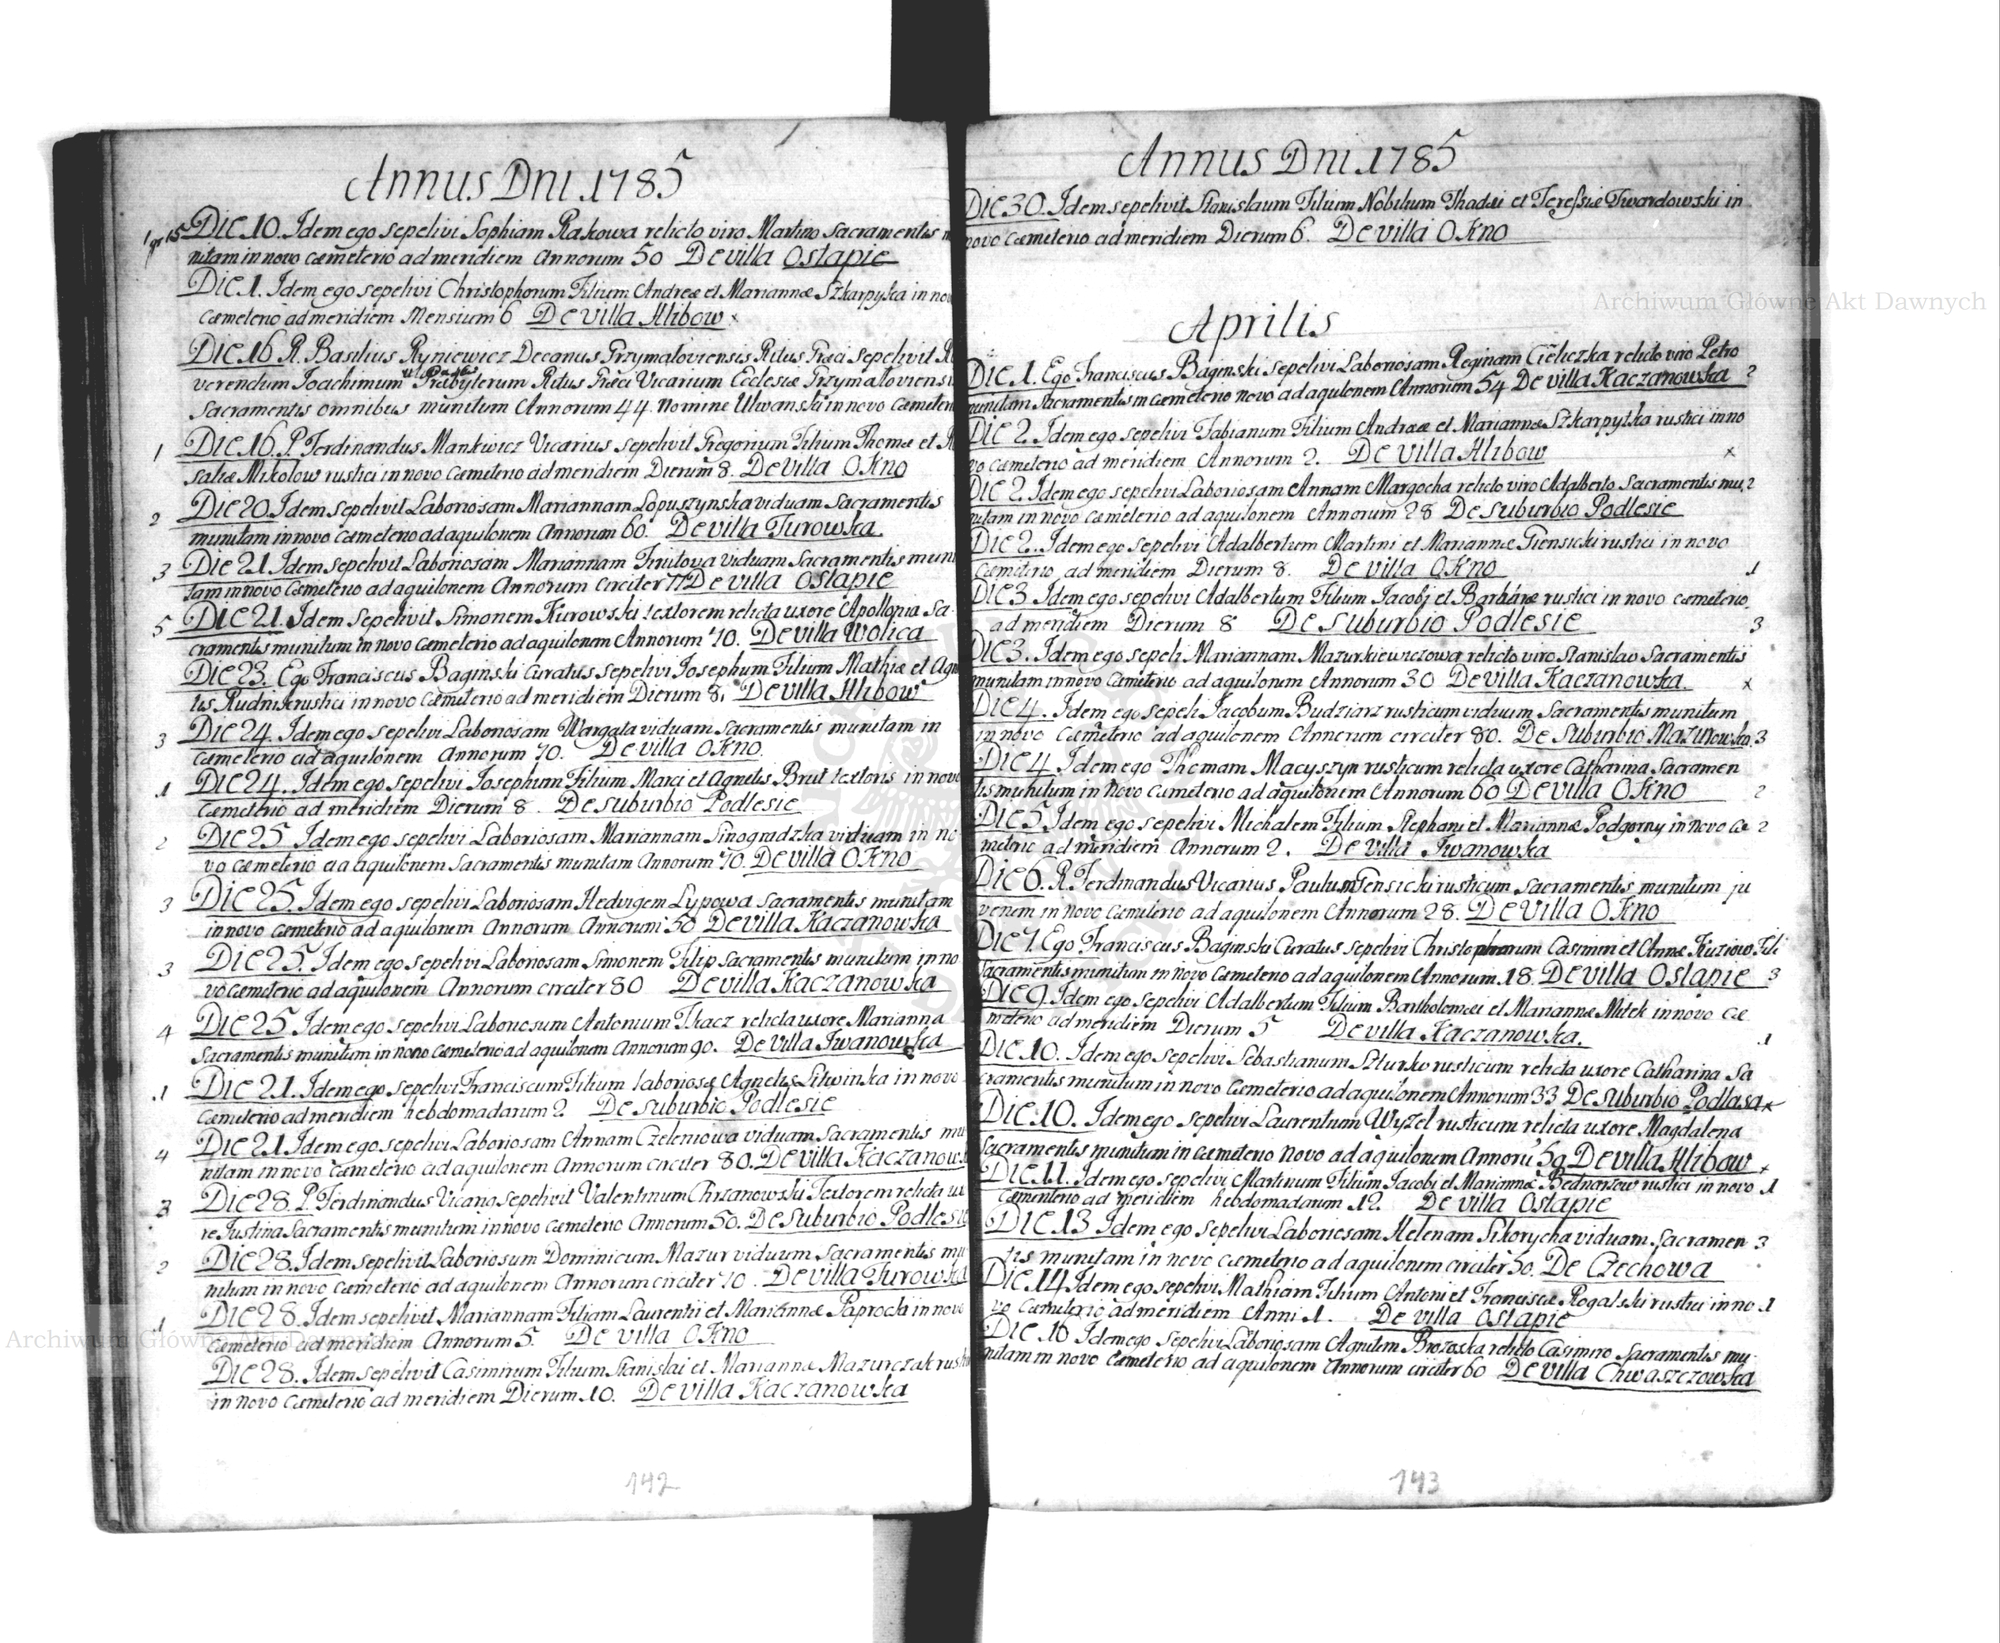 Annus Dni 1785
1 gr 15 Die 10. Idem ego sepelivi Sophiam Rakowa relicto viro Martino Sacramentis
nitam in novo Cæmeterio ad meridiem Annorum 50 De villa Ostapie
Die 1. Idem ego sepelivi Christophorum Filium Andreæ et Mariannæ Szkarpyka in nov
Cæmeterio ad meridiem Mensium 6 De villa Hlibow x
Die 16 R. Basilius Ryniewicz Decanus Grzymaloviensis Ritus Græci Sepelivit R
verendum Joachimum Præbyterum Ritus Græci Vicarium Ecclesiæ Grzymalloviensi
Sacramentis omnibus munitum Annorum 44 Nomine Ulwanski in novo Cæmeteri
1 Die 16. P. Ferdinandus Mankiewicz Vicarius sepelivit Gregorium Filium Thomæ et R
saliæ Mikolow rustici in novo Cæmeterio ad meridiem Dierum 8. De villa Okno
2 Die 20. Idem sepelivit Laboriosam Mariannam Lopuszynska viduam Sacramentis
munitam in novo Cæmeterio ad aquilonem Annorum 60. De villa Turowka
3 Die 21. Idem sepelivit Laboriosam Mariannam viduam Sacramentis muni
tam in novo Cæmeterio ad aquilonem Annorum circiter 77 De villa Ostapie
5 Die 21. Idem Sepelivit Simonem Kurowski textorem relicta uxore Apollonia Sa-
cramentis munitum in novo Cæmeterio ad aquilonem Annorum 70. De villa Wolica
Die 23. Ego Franciscus Baginski Curatus sepelivi Josephum Filium Mathiæ et Agn
tis Rudnik rustici in novo Cæmeterio ad meridiem Dierum 8. De villa Hlibow
3 Die 24. Idem ego sepelivi Laboriosam Wargata viduam Sacramentis munitam in
Cæmeterio ad aquilonem Annorum 70. De villa Okno
1 Die 24. Idem ego sepelivi Josephum Filium Marci et Agnetis Brut textoris in novo
Cæmeterio ad meridiem Dierum 8. De suburbio Podlesie
2 Die 25 Idem ego sepelivi Laboriosam Mariannam Sinogradzka viduam in no
vo Cæmeterio ad aquilonem Sacramentis munitam Annorum 70. De villa Okno
3 Die 25. Idem ego sepelivi Laboriosam Hedvigem Lypowa Sacramentis munitam
in novo Cæmeterio ad aquilonem Annorum Annorum 50 De villa Kaczanowka
3 Die 25. Idem ego sepelivi Laboriosam Simonem Filip Sacramentis munitum in no
vo Cæmeterio ad aquilonem Annorum circiter 80 De villa Kaczanowka
4 Die 25 Idem ego sepelivi Laboriosum Antonium Tkacz relicta uxore Marianna
Sacramentis munitum in novo Cæmeterio ad aquilonem Annorum 90. De villa Iwanowka
1 Die 21. Idem ego sepelivi Franciscum Filium laboriosæ Agnetis Litwinka in novo
Cæmeterio ad meridiem hebdomadarum 2 De Suburbio Podlesie
4 Die 21. Idem ego sepelivi Laboriosam Annam Czeleniowa viduam Sacramentis mu
nitam in novo Cæmeterio ad aquilonem Annorum circiter 80. De villa Kaczanowk
3 Die 28. P. Ferdinandus Vicarius Sepelivit Valentinum Chrzanowski Textorem relicta ux
re Justina Sacramentis munitum in novo Cæmeterio Annorum 50. De Suburbio Podlesie
2 Die 28. Idem sepelivit Laboriosum Dominicum Mazur viduum Sacramentis mu
nitum in novo Cæmeterio ad aquilonem Annorum circiter 70. De villa Turowka
1 Die 28. Idem sepelivit Mariannam Filiam Laurentii et Mariannæ Paprocki in novo
Cæmeterio ad meridiem Annorum 5. De villa Okno
Die 28. Idem sepelivit Casimirum Filium Stanislai et Mariannæ Mazurczak rusti
in novo Cæmeterio ad meridiem Dierum 10. De villa Kaczanowka
142
Annus Dni 1785
Die 30. Idem sepelivit Stanislaum Filium Nobilium Thadæi et Teressiæ Twardowski in
novo Cæmeterio ad meridiem Dierum 6. De villa Okno
Aprilis
Die 1. Ego Franciscus Baginski sepelivi Laboriosam Reginam Cieliczka relicto viro Petro
munitam Sacramentis in cæmeterio novo ad aquilonem Annorum 54 De villa Kaczanowka 2
Die 2. Idem ego sepelivi Fabianum Filium Andreæ et Mariannæ Szkarpytka rustici in no
vo Cæmeterio ad meridiem Annorum 2. De villa Hlibow x
Die 2. Idem ego sepelivi Laboriosam Annam Margocha relicto viro Adalberto Sacramentis mu. 2
nitam in novo Cæmeterio ad aquilonem Annorum 28 De suburbio Podlesie
Die 2. Idem ego sepelivi Adalbertum Martini et Mariannæ Giensicki rustici in novo
Cæmeterio ad meridiem Dierum 8. De villa Okno 1
Die 3 Idem ego sepelivi Adalbertum Filium Jacobi et Barbaræ rustici in novo cæmeterio
ad meridiem Dierum 8 De Suburbio Podlesie 3
Die 3. Idem ego sepeli Mariannam Mazurkiewiczowa relicto viro Stanislao Sacramentis
munitam in novo Cæmeterio ad aquilonem Annorum 30 De villa Kaczanowka x
Die 4. Idem ego sepeli Jacobum Budziarz rusticum viduum Sacramentis munitum
in novo Cæmeterio ad aquilonem Annorum circiter 80. De Suburbio Mazurowka 3
Die 4 Idem ego Thomam Macyszyn rusticum relicta uxore Catharina Sacramen
tis munitum in novo Cæmeterio ad aquilonem Annorum 60 De villa Okno 2
Die 5 Idem ego sepelivi Michalem Filium Stephani et Mariannæ Podgorny in novo Cæ 2
meterio ad meridiem Annorum 2. De villa Iwanowka
Die 6. R. Ferdinandus Vicarius Paulum Gensicki rusticum Sacramentis munitum ju
venem in novo Cæmeterio ad aquilonem Annorum 28. De villa Okno
Die 7. Ego Franciscus Baginski Curatus sepelivi Christophorum Casimiri et Annæ Kuziow Fili
Sacramentis munitum in novo Cæmeterio ad aquilonem Annorum 18. De villa Ostapie 3
Die 9. Idem ego sepelivi Adalbertum Filium Bartholomæi et Mariannæ Mitek in novo Cæ
meterio ad meridiem Dierum 5 De villa Kaczanowka. 1
Die 10. Idem ego sepelivi Sebastianum Szturko rusticum relicta uxore Catharina Sa
cramentis munitum in novo Cæmeterio ad aquilonem Annorum 33 De suburbio Podlasa x
Die 10. Idem ego sepelivi Laurentium Wyzel rusticum relicta uxore Magdalena
Sacramentis munitum in cæmeterio novo ad aquilonem Annorū 50 De villa Hlibow x
Die 11. Idem ego sepelivi Martinum Filium Jacobi et Mariannæ Bednarzow rustici in novo 1
Cæmenterio ad meridiem hebdomadarum 12. De villa Ostapie
Die 13 Idem ego sepelivi Laboriosam Helenam Sikorycha viduam Sacramen 3
tis munitam in novo cæmeterio ad aquilonem circiter 50. De Czechowa
Die 14 Idem ego sepelivi Mathiam Filium Antoni et Franciscæ Rogalski rustici in no 1
vo Cæmeterio ad meridiem Anni 1. De villa Ostapie
Die 16 Idem ego sepelivi Laboriosam Agnetem Brozoska relicto Casimiro Sacramentis mu-
nitam in novo Cæmeterio ad aquilonem Annorum circiter 60 De villa Chwaszczowka
143
Archiwum Główne Akt Dawnych
Archiwum Główne Akt Dawnych